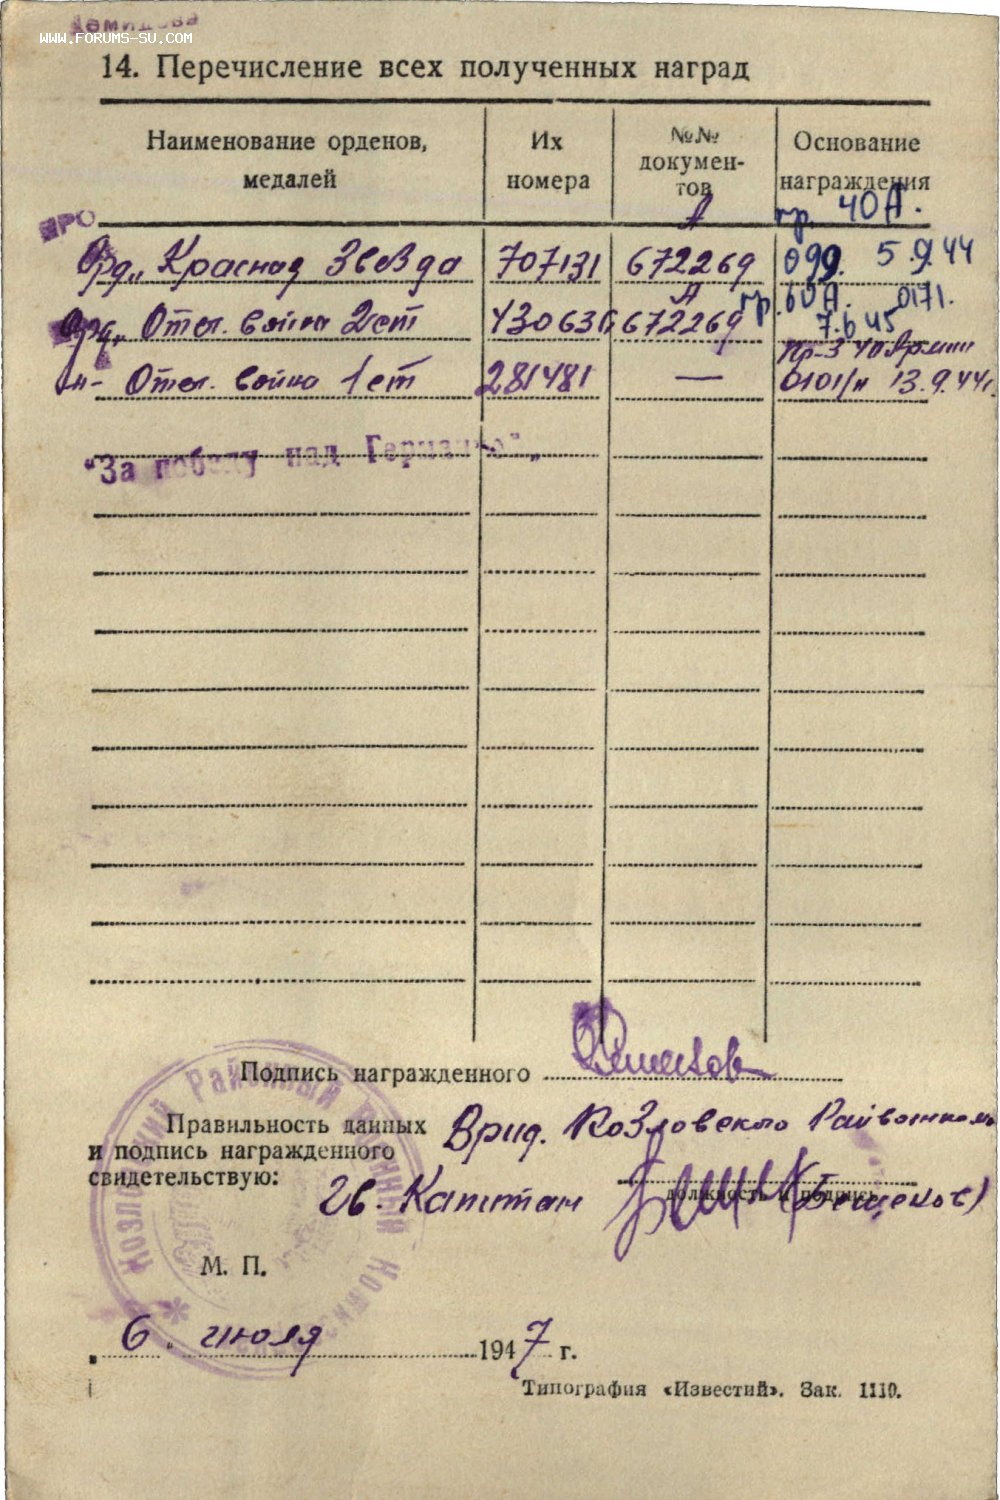 Демидова
WWW.FORUMS-SU.COM
14. Перечисление всех полученных наград
Наименование орденов, медалей
Их номера
№№ документов
Основание награждения
пр. 40А.
Орд. Красная Звезда 707131 А 672269 099. 5.9.44
Орд. Отеч. война 2 ст 430636 А 672269 пр. 0171. 7.6 45
-н- Отеч. война 1 ст 281481 — Пр-з 40 Армии 0101/н 13.9.44г.
"За победу над Германией"
Подпись награжденного
Правильность данных Врид. Козловского Райвоенкома
и подпись награженного
свидетельствую: Гв. Капитан
должность и подпись
Козловский Районный Военный
М. П.
"6" июля 1947 г.
Типография «Известий». Зак. 1110.